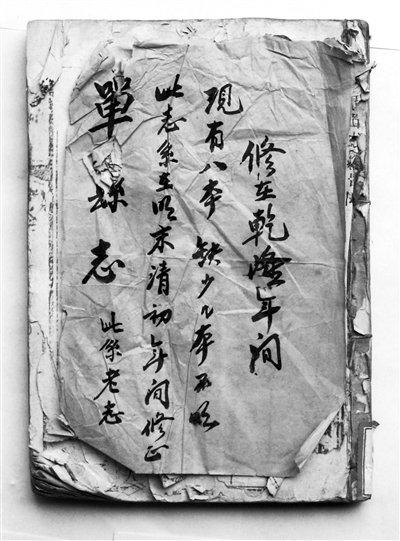 修在乾隆年间
現有八本 缺少几本不明
此志系在明末清初年间修正
單縣志 此系老志